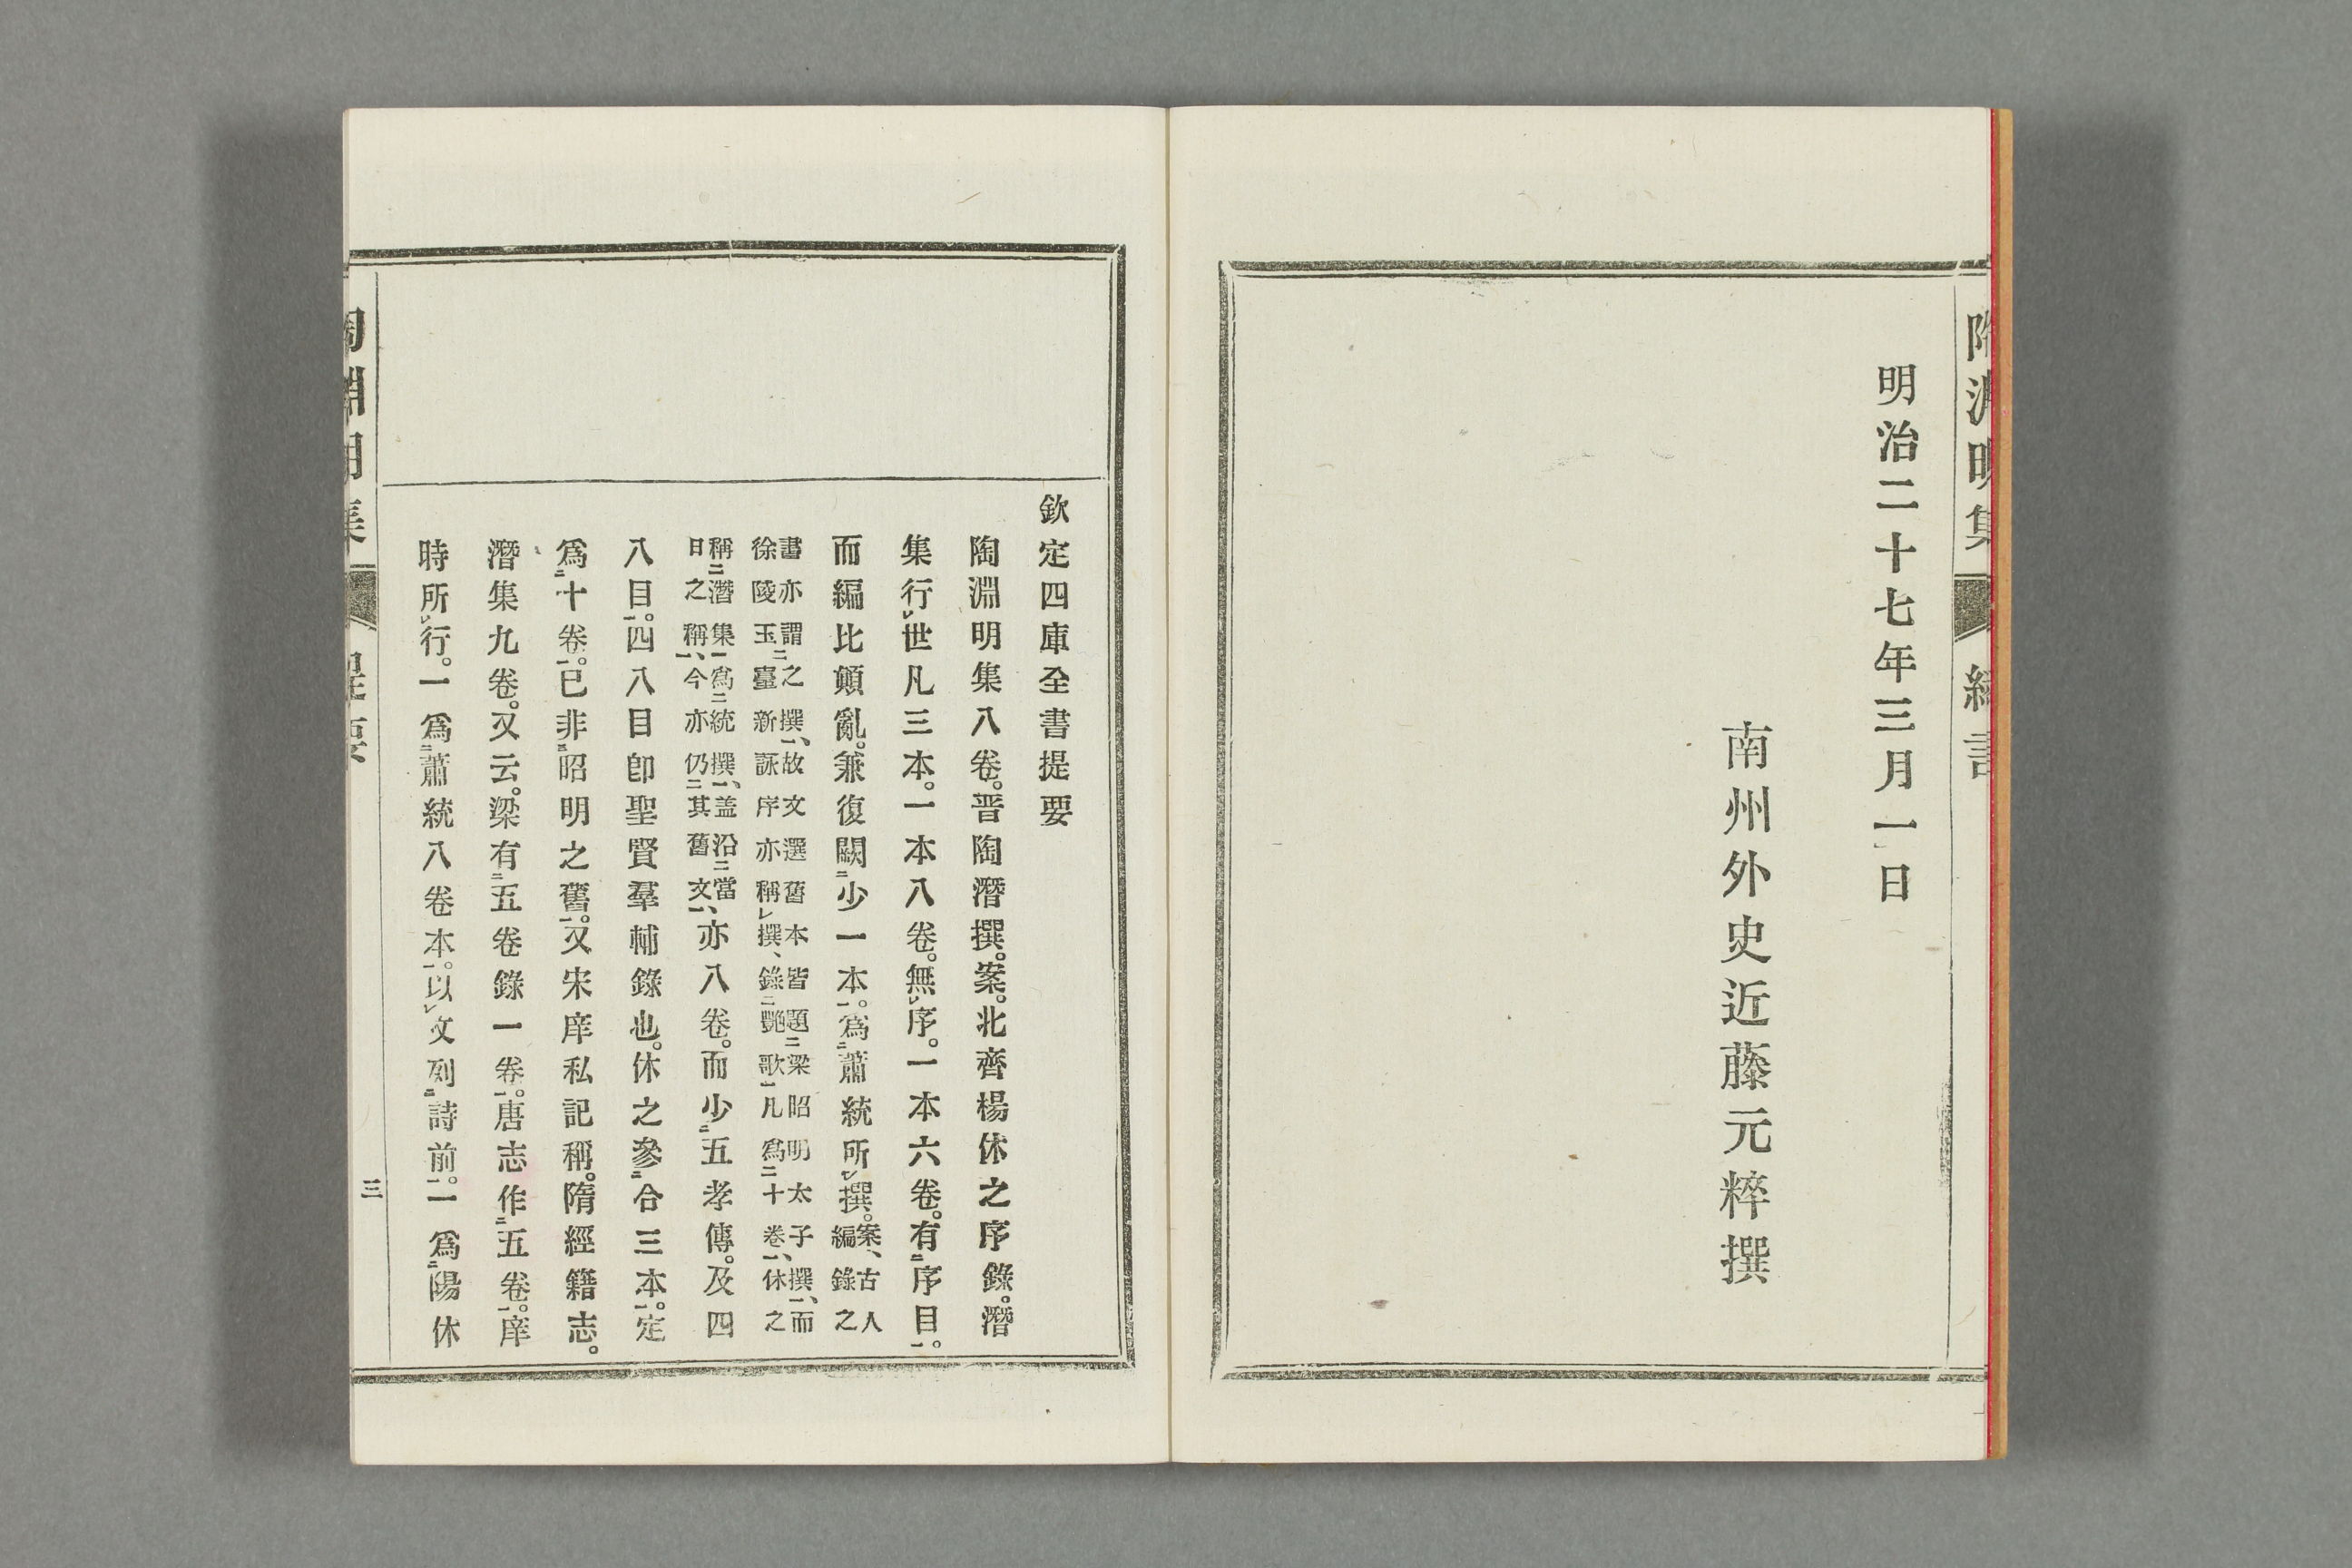 陶淵明集
明治二十七年三月一日
南州外史近藤元粹撰
欽定四庫全書提要
陶淵明集八卷。晋陶潛撰。案。北齊楊休之序錄。潛
集行世凡三本。一本八卷。無序。一本六卷。有序目。
而編比顛亂。兼復闕少一本。爲蕭統所撰。案、古人編錄之
書亦謂之撰、故文選舊本皆題梁昭明太子撰、而
徐陵玉臺新詠序亦稱撰、錄艷歌凡爲十卷、休之
稱潛集爲統撰、盖沿當日之稱、今亦仍其舊文、亦八卷。而少五孝傳。及四
八目。四八目卽聖賢羣輔錄也。休之參合三本。定
爲十卷。已非昭明之舊。又宋庠私記稱。隋經籍志。
潛集九卷。又云。梁有五卷錄一卷。唐志作五卷。庠
時所行。一爲蕭統八卷本。以文列詩前。一爲陽休
陶淵明集
提要
三